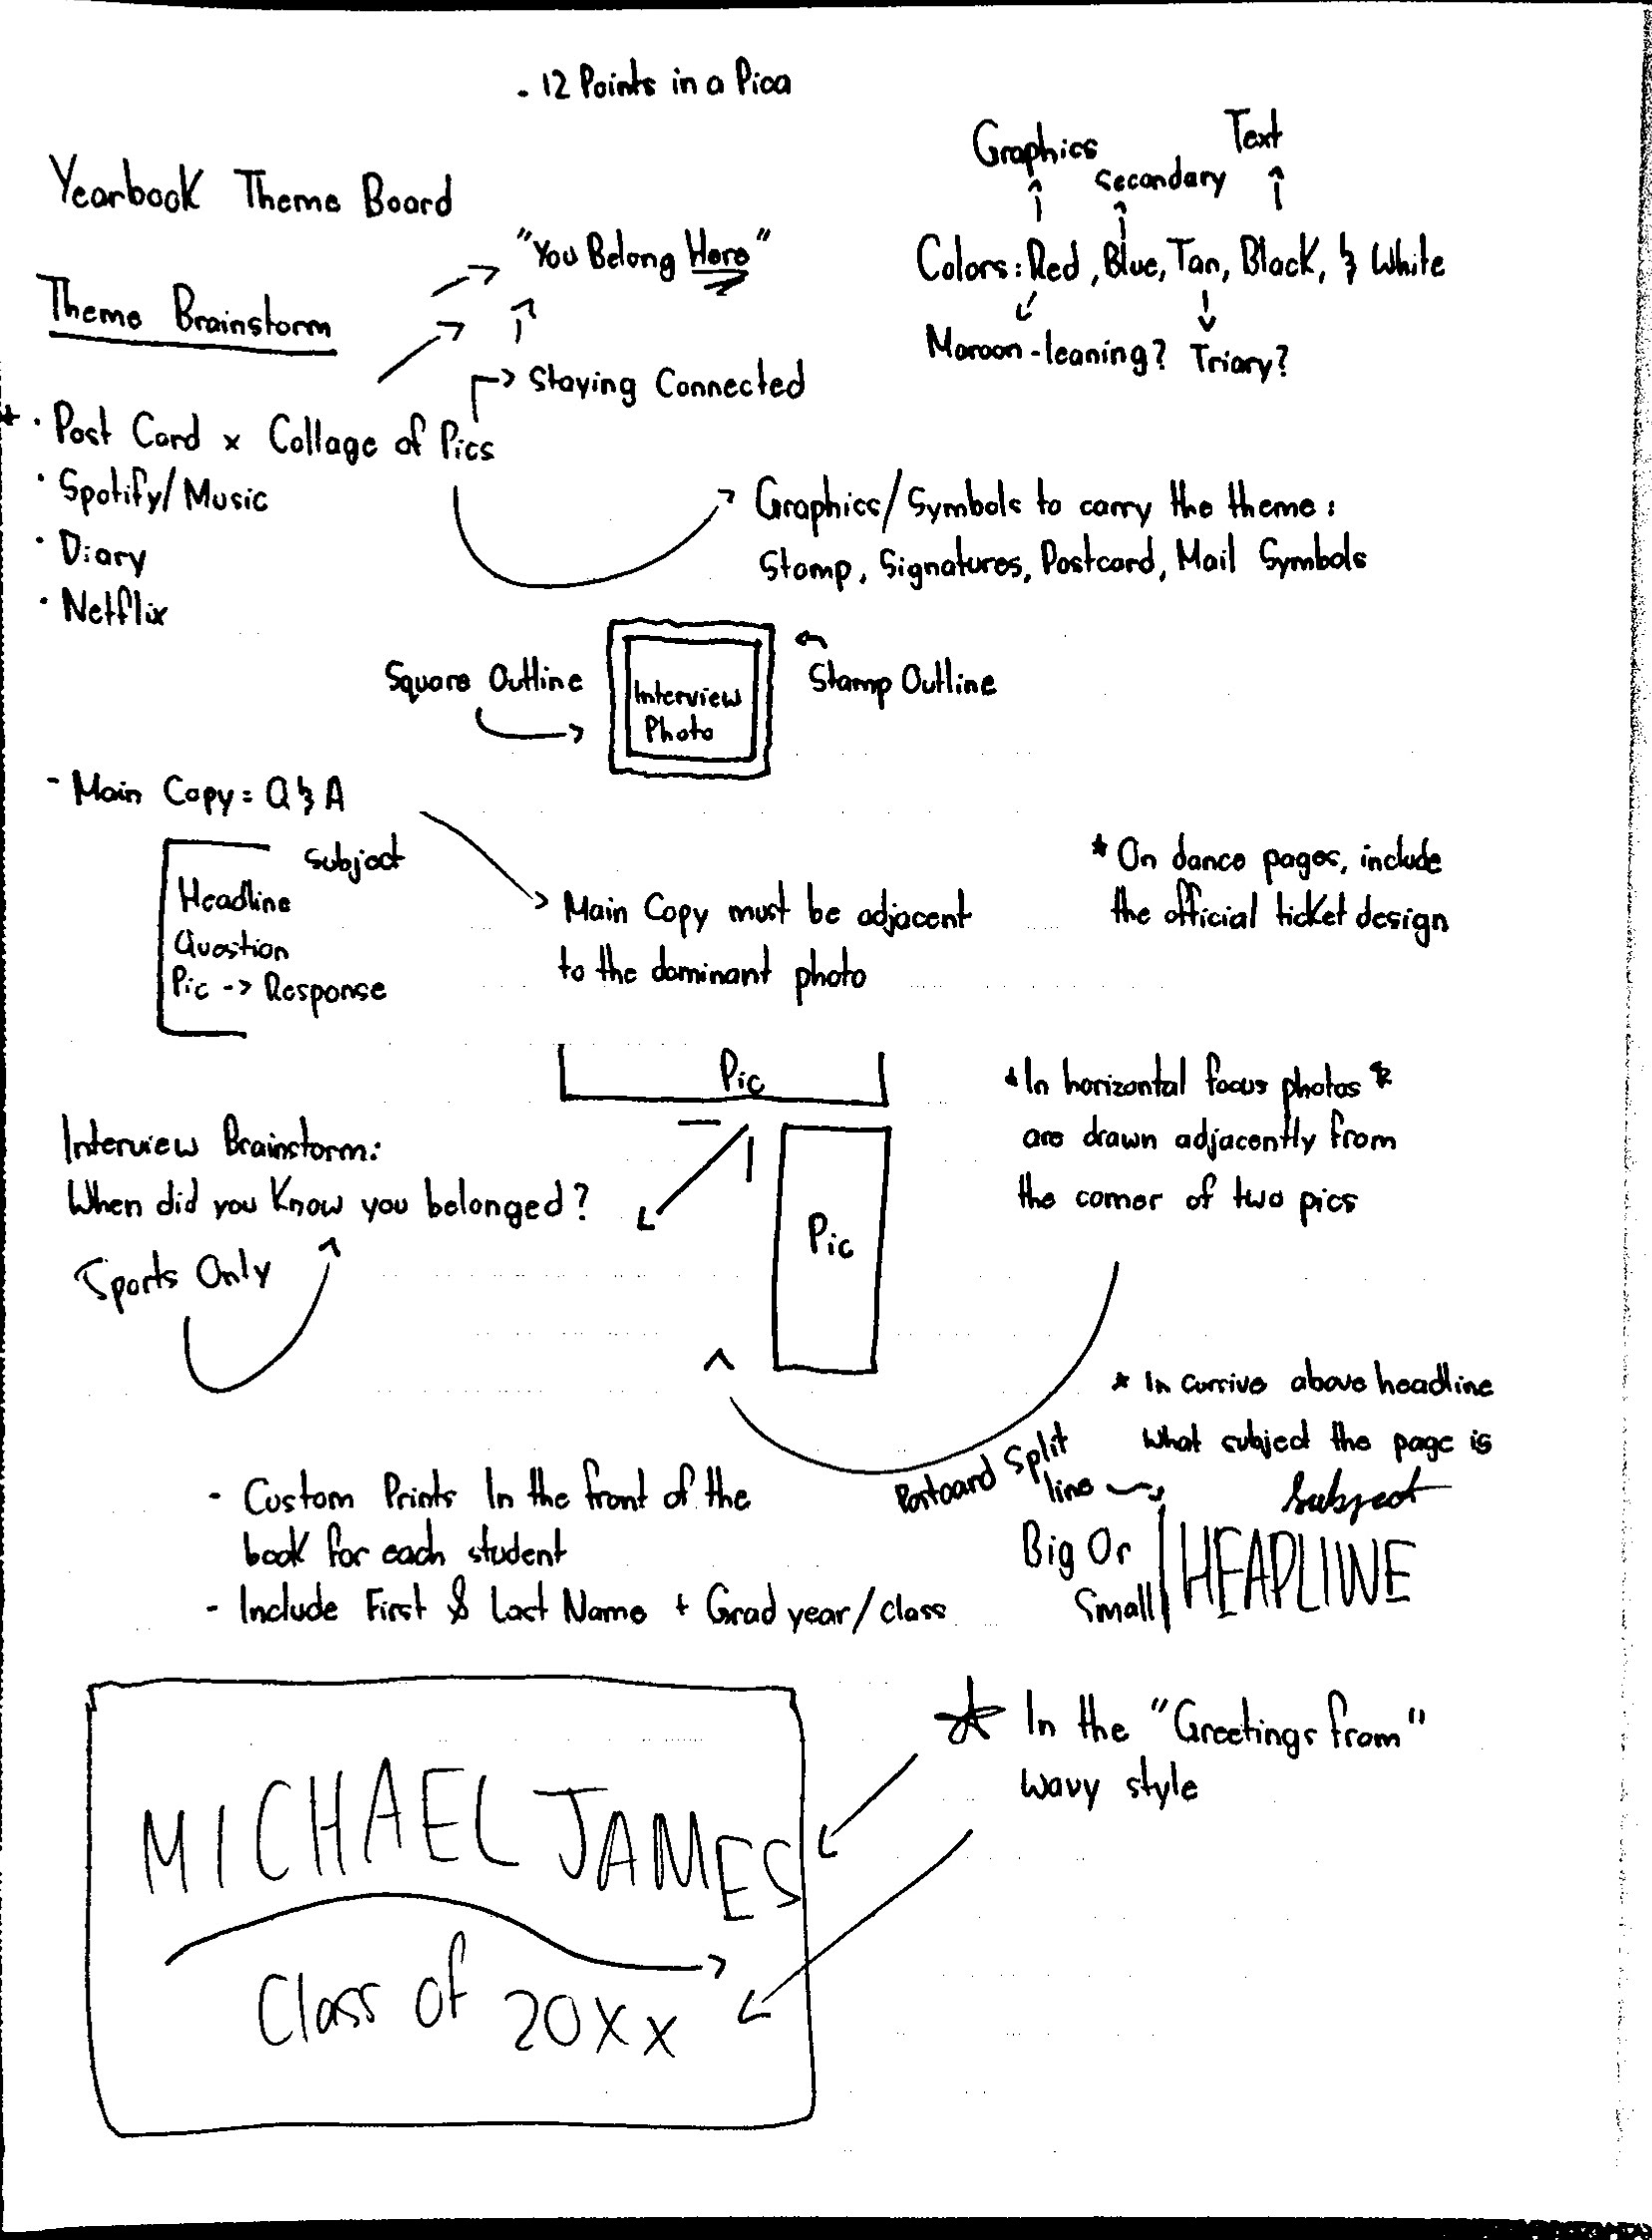 - 12 Points in a Pica
Yearbook Theme Board
Graphics
secondary
Text
Colors: Red, Blue, Tan, Black, & White
Maroon-leaning?
Triary?
"You Belong Here"
Theme Brainstorm
Staying Connected
· Post Card x Collage of Pics
· Spotify/Music
· Diary
· Netflix
Graphics/Symbols to carry the theme:
Stamp, Signatures, Postcard, Mail Symbols
Square Outline
Interview
Photo
Stamp Outline
- Main Copy = Q & A
Subject
Headline
Question
Pic -> Response
Main Copy must be adjacent
to the dominant photo
* On dance pages, include
the official ticket design
Pic
Pic
* In horizontal focus photos *
are drawn adjacently from
the corner of two pics
Interview Brainstorm:
When did you know you belonged?
Sports Only
* In cursive above headline
what subject the page is
Postcard Split
line
Subject
Big Or
Small
HEADLINE
- Custom Prints In the front of the
book for each student
- Include First & Last Name + Grad year/class
* In the "Greetings from"
wavy style
MICHAEL JAMES
Class of 20XX